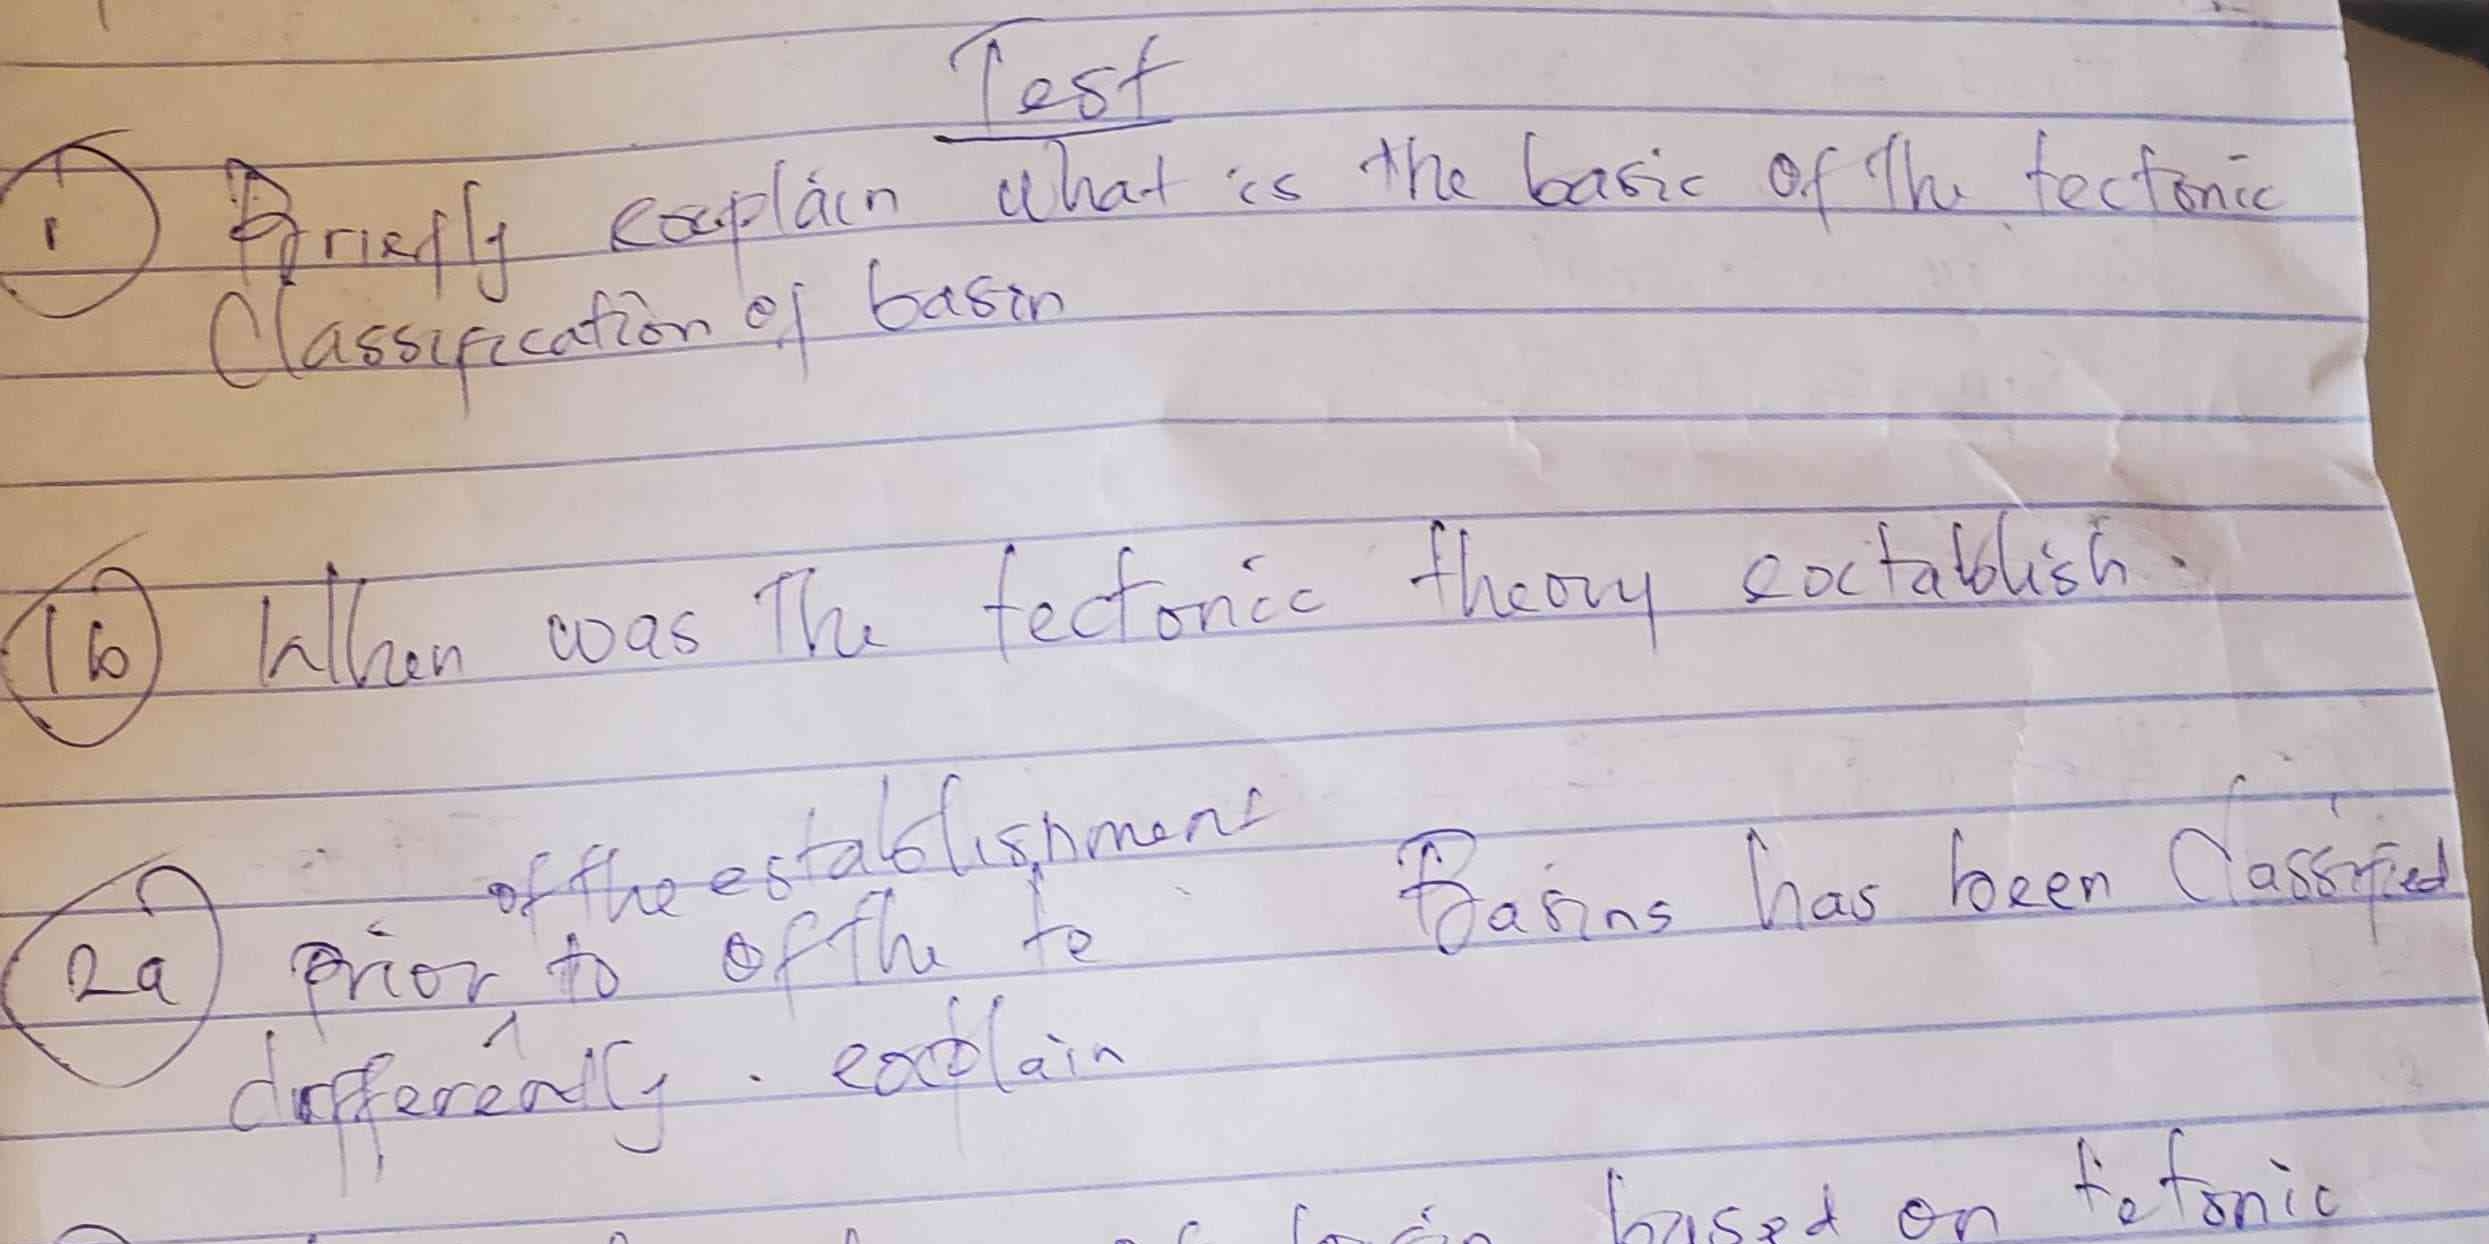 Test
1 Briefly explain what is the basic of the tectonic
Classification of basin
1b When was The tectonic theory extablish.
of the establishment
2a prior to of the te Basins has been Classified
differently. explain
basin based on tetonic